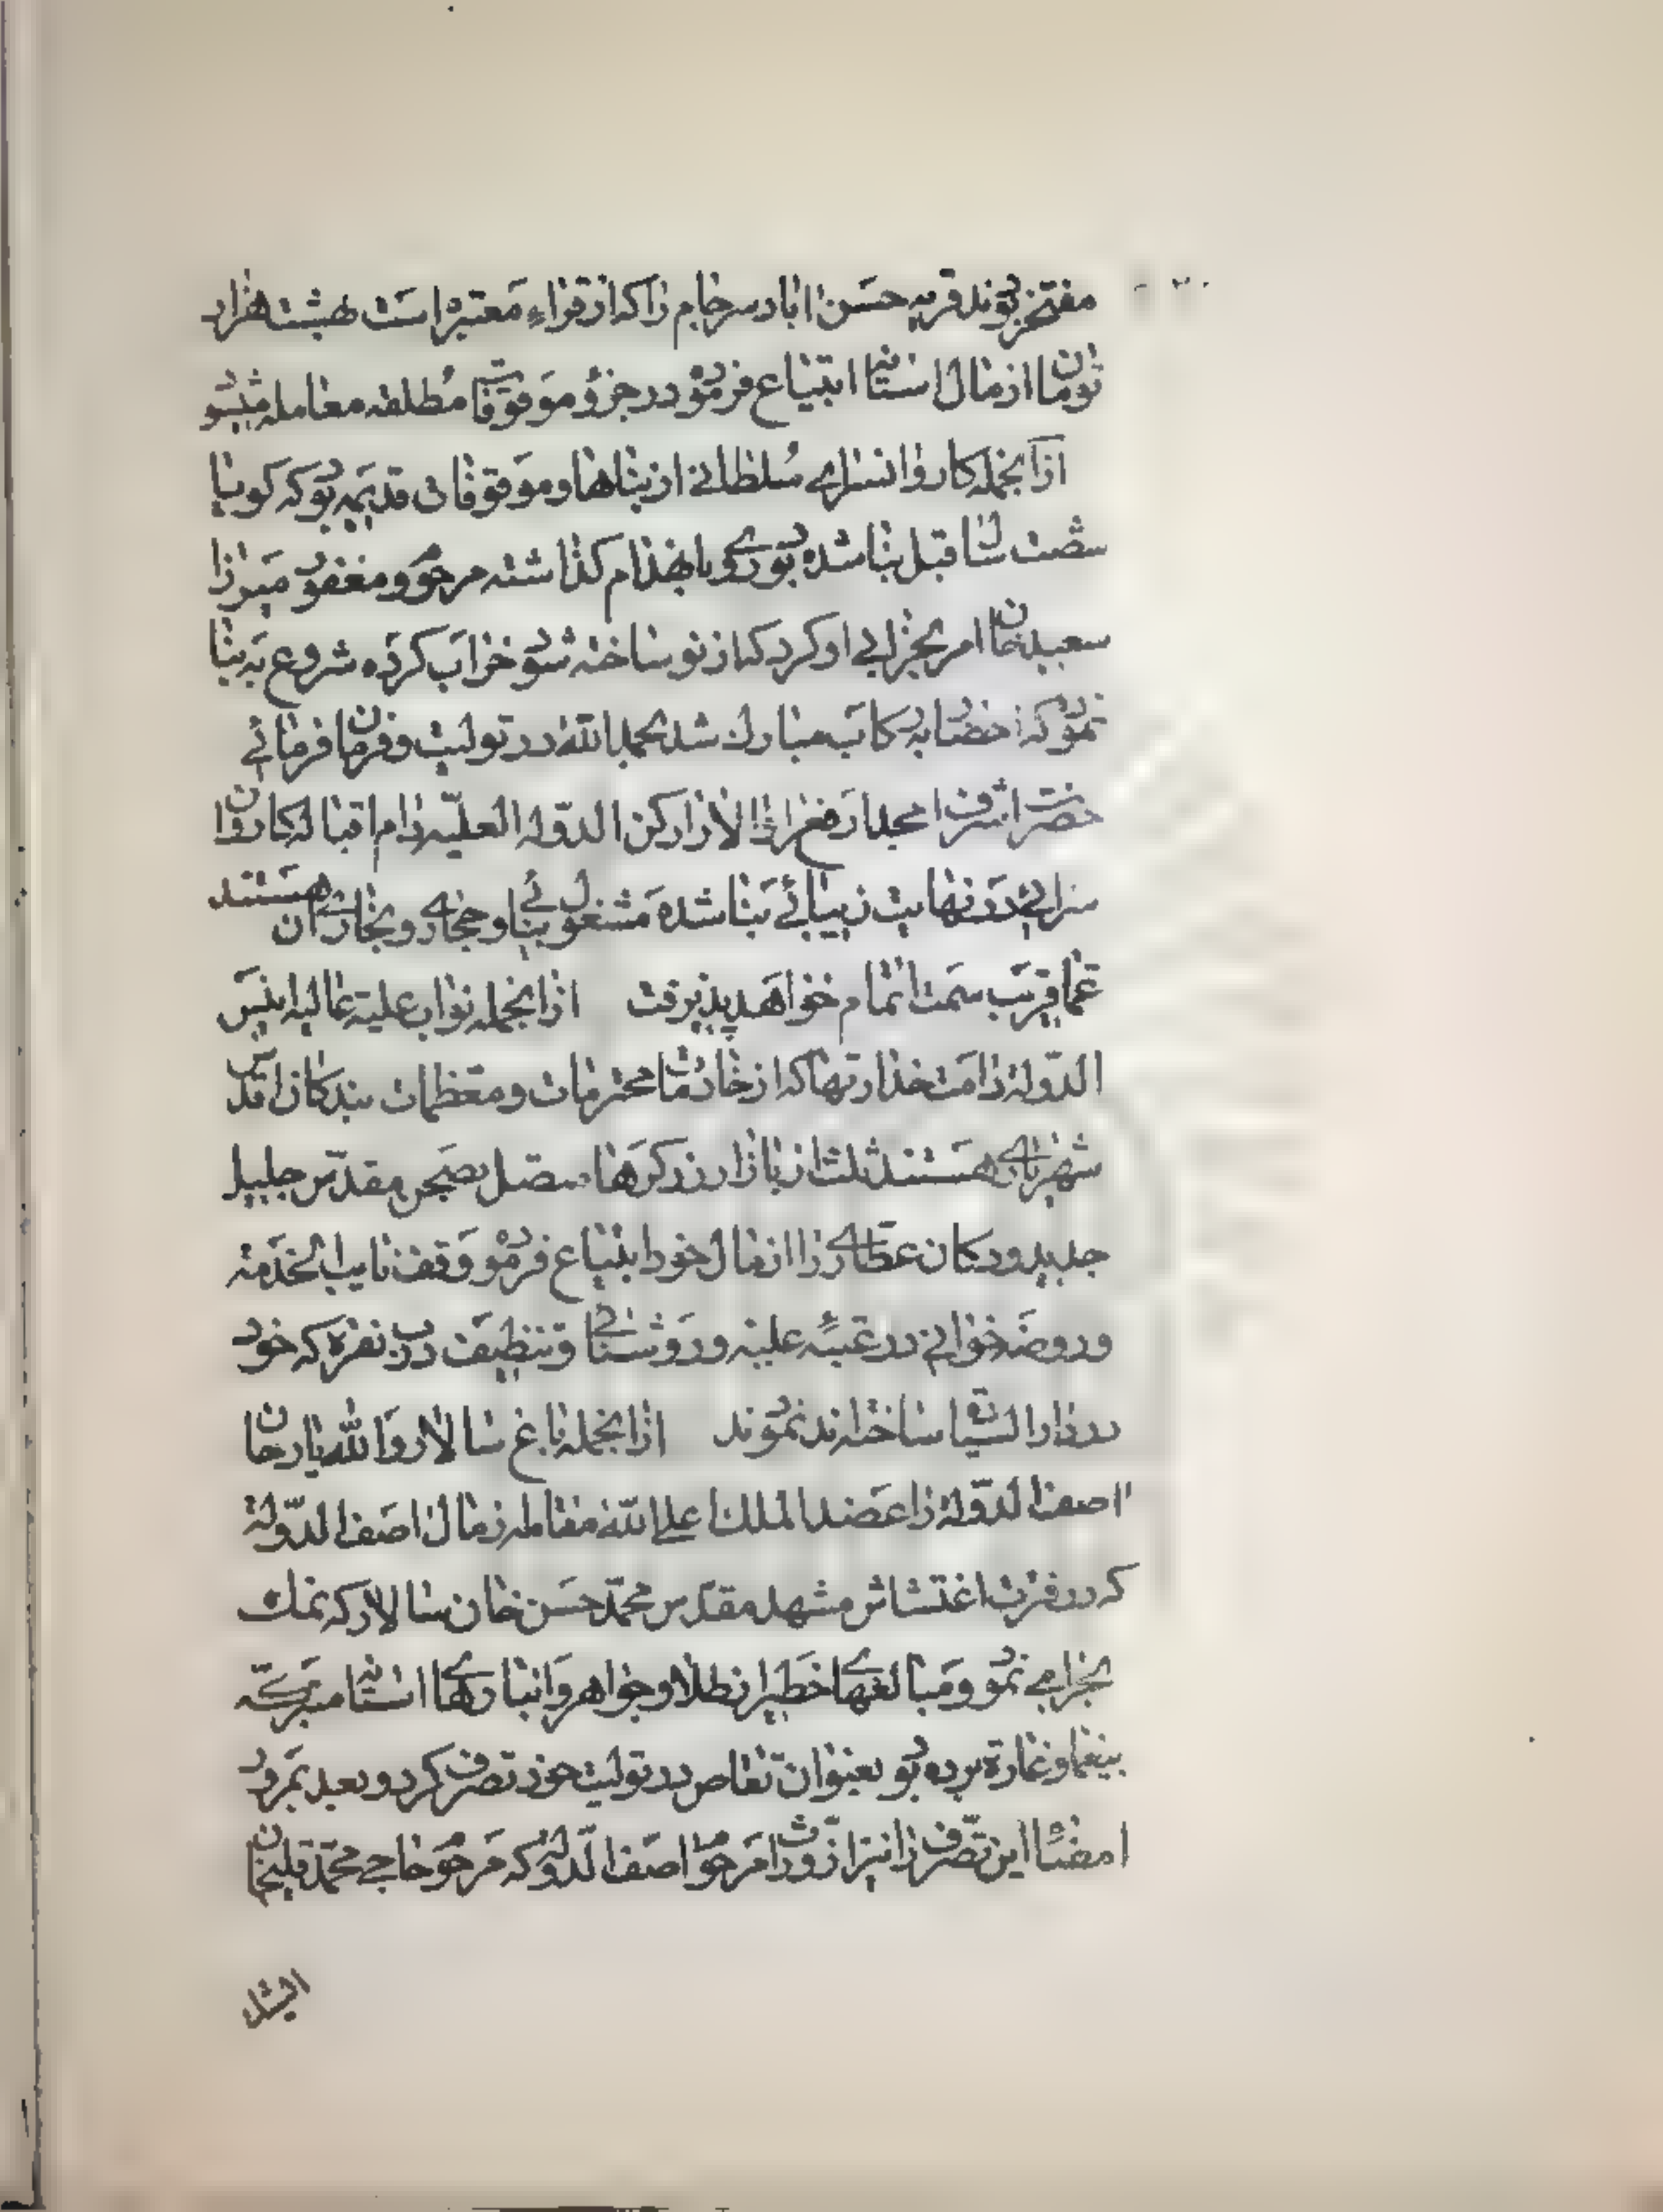 مفتخر بودند قریه حسن اباد سرجام را که از قراء معتبره است هشت هزار
تومان از مال استانه ابتیاع فرمود در جزو موقوفات مطلقه معامله میشود
ازانجمله کاروانسرای سلطانی از بناها و موقوفاتی قدیمه بود که کویا
شصت سال قبل بنا شده بود روی بانهدام کذاشته مرحوم و مغفور میرزا
سعید خان امر بخرابی او کرد که از نو ساخته شود خراب کرده شروع به بنا
نمود که احضار برکاب مبارک شد بحمد الله در تولیت و فرمان فرمائی
حضرت اشرف امجد ارفع والا رکن الدوله العلیه دام اقباله کاروان
سرای در نهایت زیبائی بنا شده مشغول بنائی و حجاری و نجاری ان هستند
عما قریب سمت اتمام خواهد پذیرفت ازانجمله نواب علیه عالیه انیس
الدوله دامت خدارتها که از خادمات محترمات و معظمات بندکان اقدس
شهریاری هستند ثلث از بازار زرکرها متصل بصحن مقدس جلیل
جدید و دکان عطاری را از مال خود ابتیاع فرمود وقف نایب الخدمه
و روضه خوانی در عتبه علیه و روشنائی و تنظیف درب نقره که خود
در دار السیاده ساخته اند نمودند ازانجمله باغ سالار و الله یار خان
اصف الدوله را عضد الملک اعلی الله مقامه از مال اصف الدوله
که در فترت اغتشاش مشهد مقدس محمد حسن خان سالار که نمک
بحرامی نمود و مبالغهای خطیر از طلا و جواهر و انبارهای استانه متبرکه
بیغما و غارة برده بود بعنوان تقاص در تولیت خود تصرف کرد و بعد بمرور
امضاء این تصرف را نیز از وراث مرحوم اصف الدوله که مرحوم حاجی محمد قلیخان